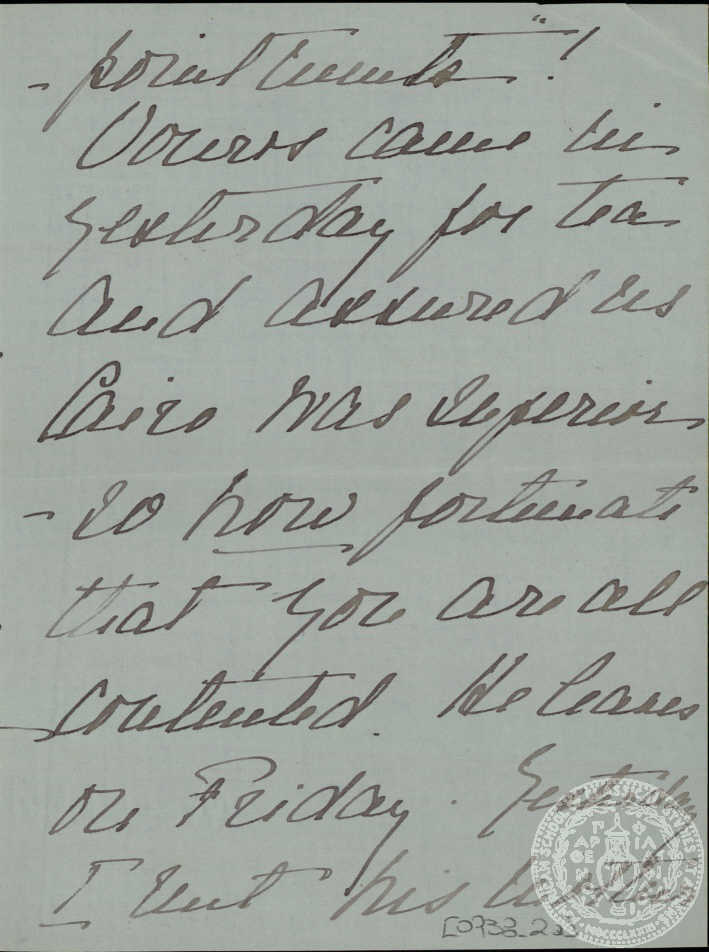 -pointments"!
Vouros came in
yesterday for tea
and assured us
Cairo was superior
- so how fortunate
that you are all
contented. He leaves
on Friday. Yesterday
I sent his